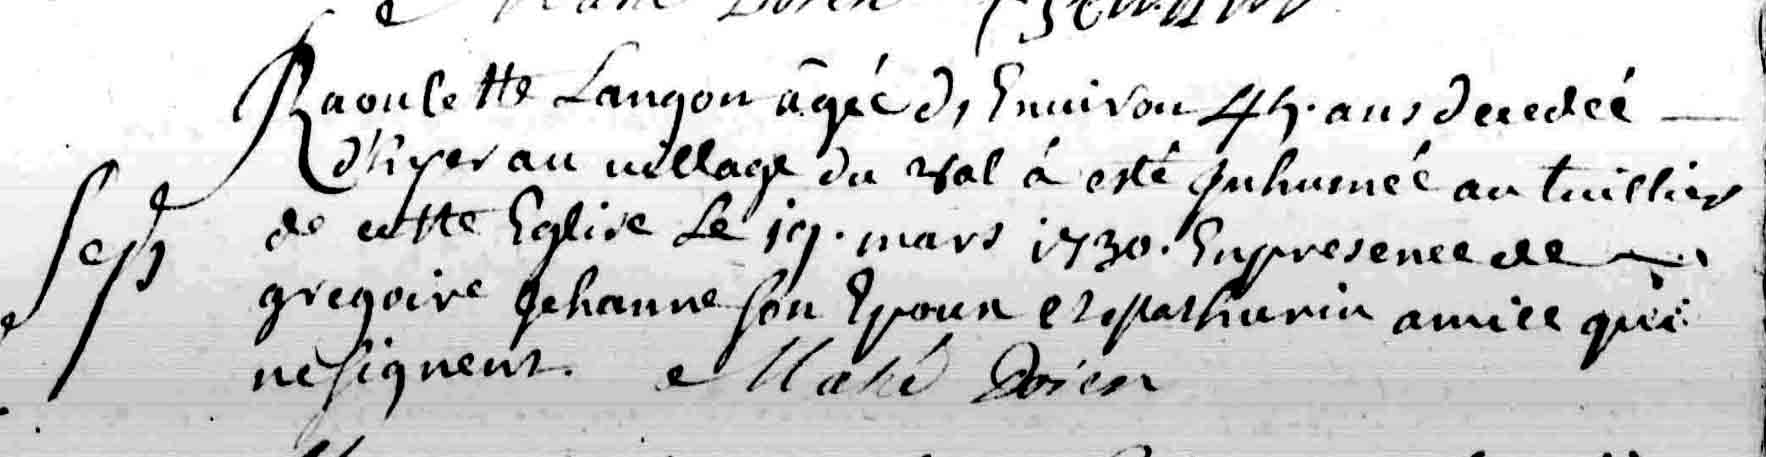 Raoulette Langon âgée d'Environ 45. ans decedée
d'hyer au village du val á esté Inhumée au
Sep de cette Eglise Le 19. mars 1730. En presence de
gregoire Jehanne son Epoux et Mathurin amice qui
ne signent. Mahé Doien